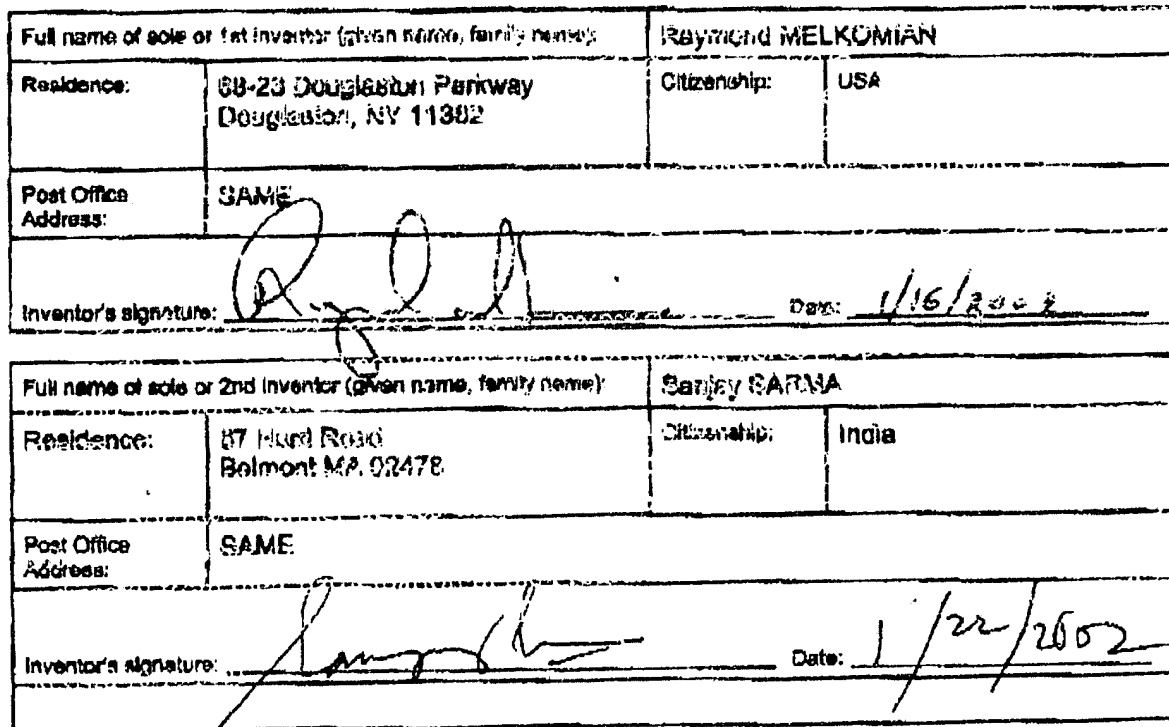 Full name of sole or 1st inventor (given name, family name): Raymond MELKOMIAN
Residence: 68-23 Douglaston Parkway Citizenship: USA
Douglaston, NY 11362
Post Office Address: SAME
Inventor's signature: Date: 1/16/2002
Full name of sole or 2nd inventor (given name, family name): Sanjay SARMA
Residence: 87 Hurd Road Citizenship: India
Belmont MA 02478
Post Office Address: SAME
Inventor's signature: Date: 1/22/2002